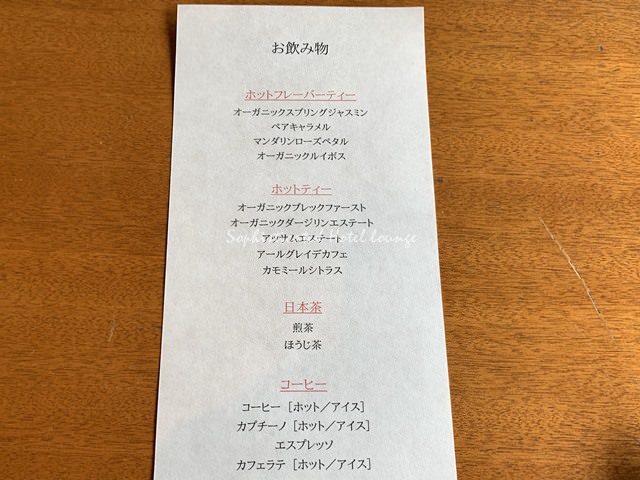 お飲み物
ホットフレーバーティー
オーガニックスプリングジャスミン
ペアキャラメル
マンダリンローズペタル
オーガニックルイボス
ホットティー
オーガニックブレックファースト
オーガニックダージリンエステート
アッサムエステート
アールグレイデカフェ
カモミールシトラス
日本茶
煎茶
ほうじ茶
コーヒー
コーヒー［ホット／アイス］
カプチーノ［ホット／アイス］
エスプレッソ
カフェラテ［ホット／アイス］
Hotel Lounge